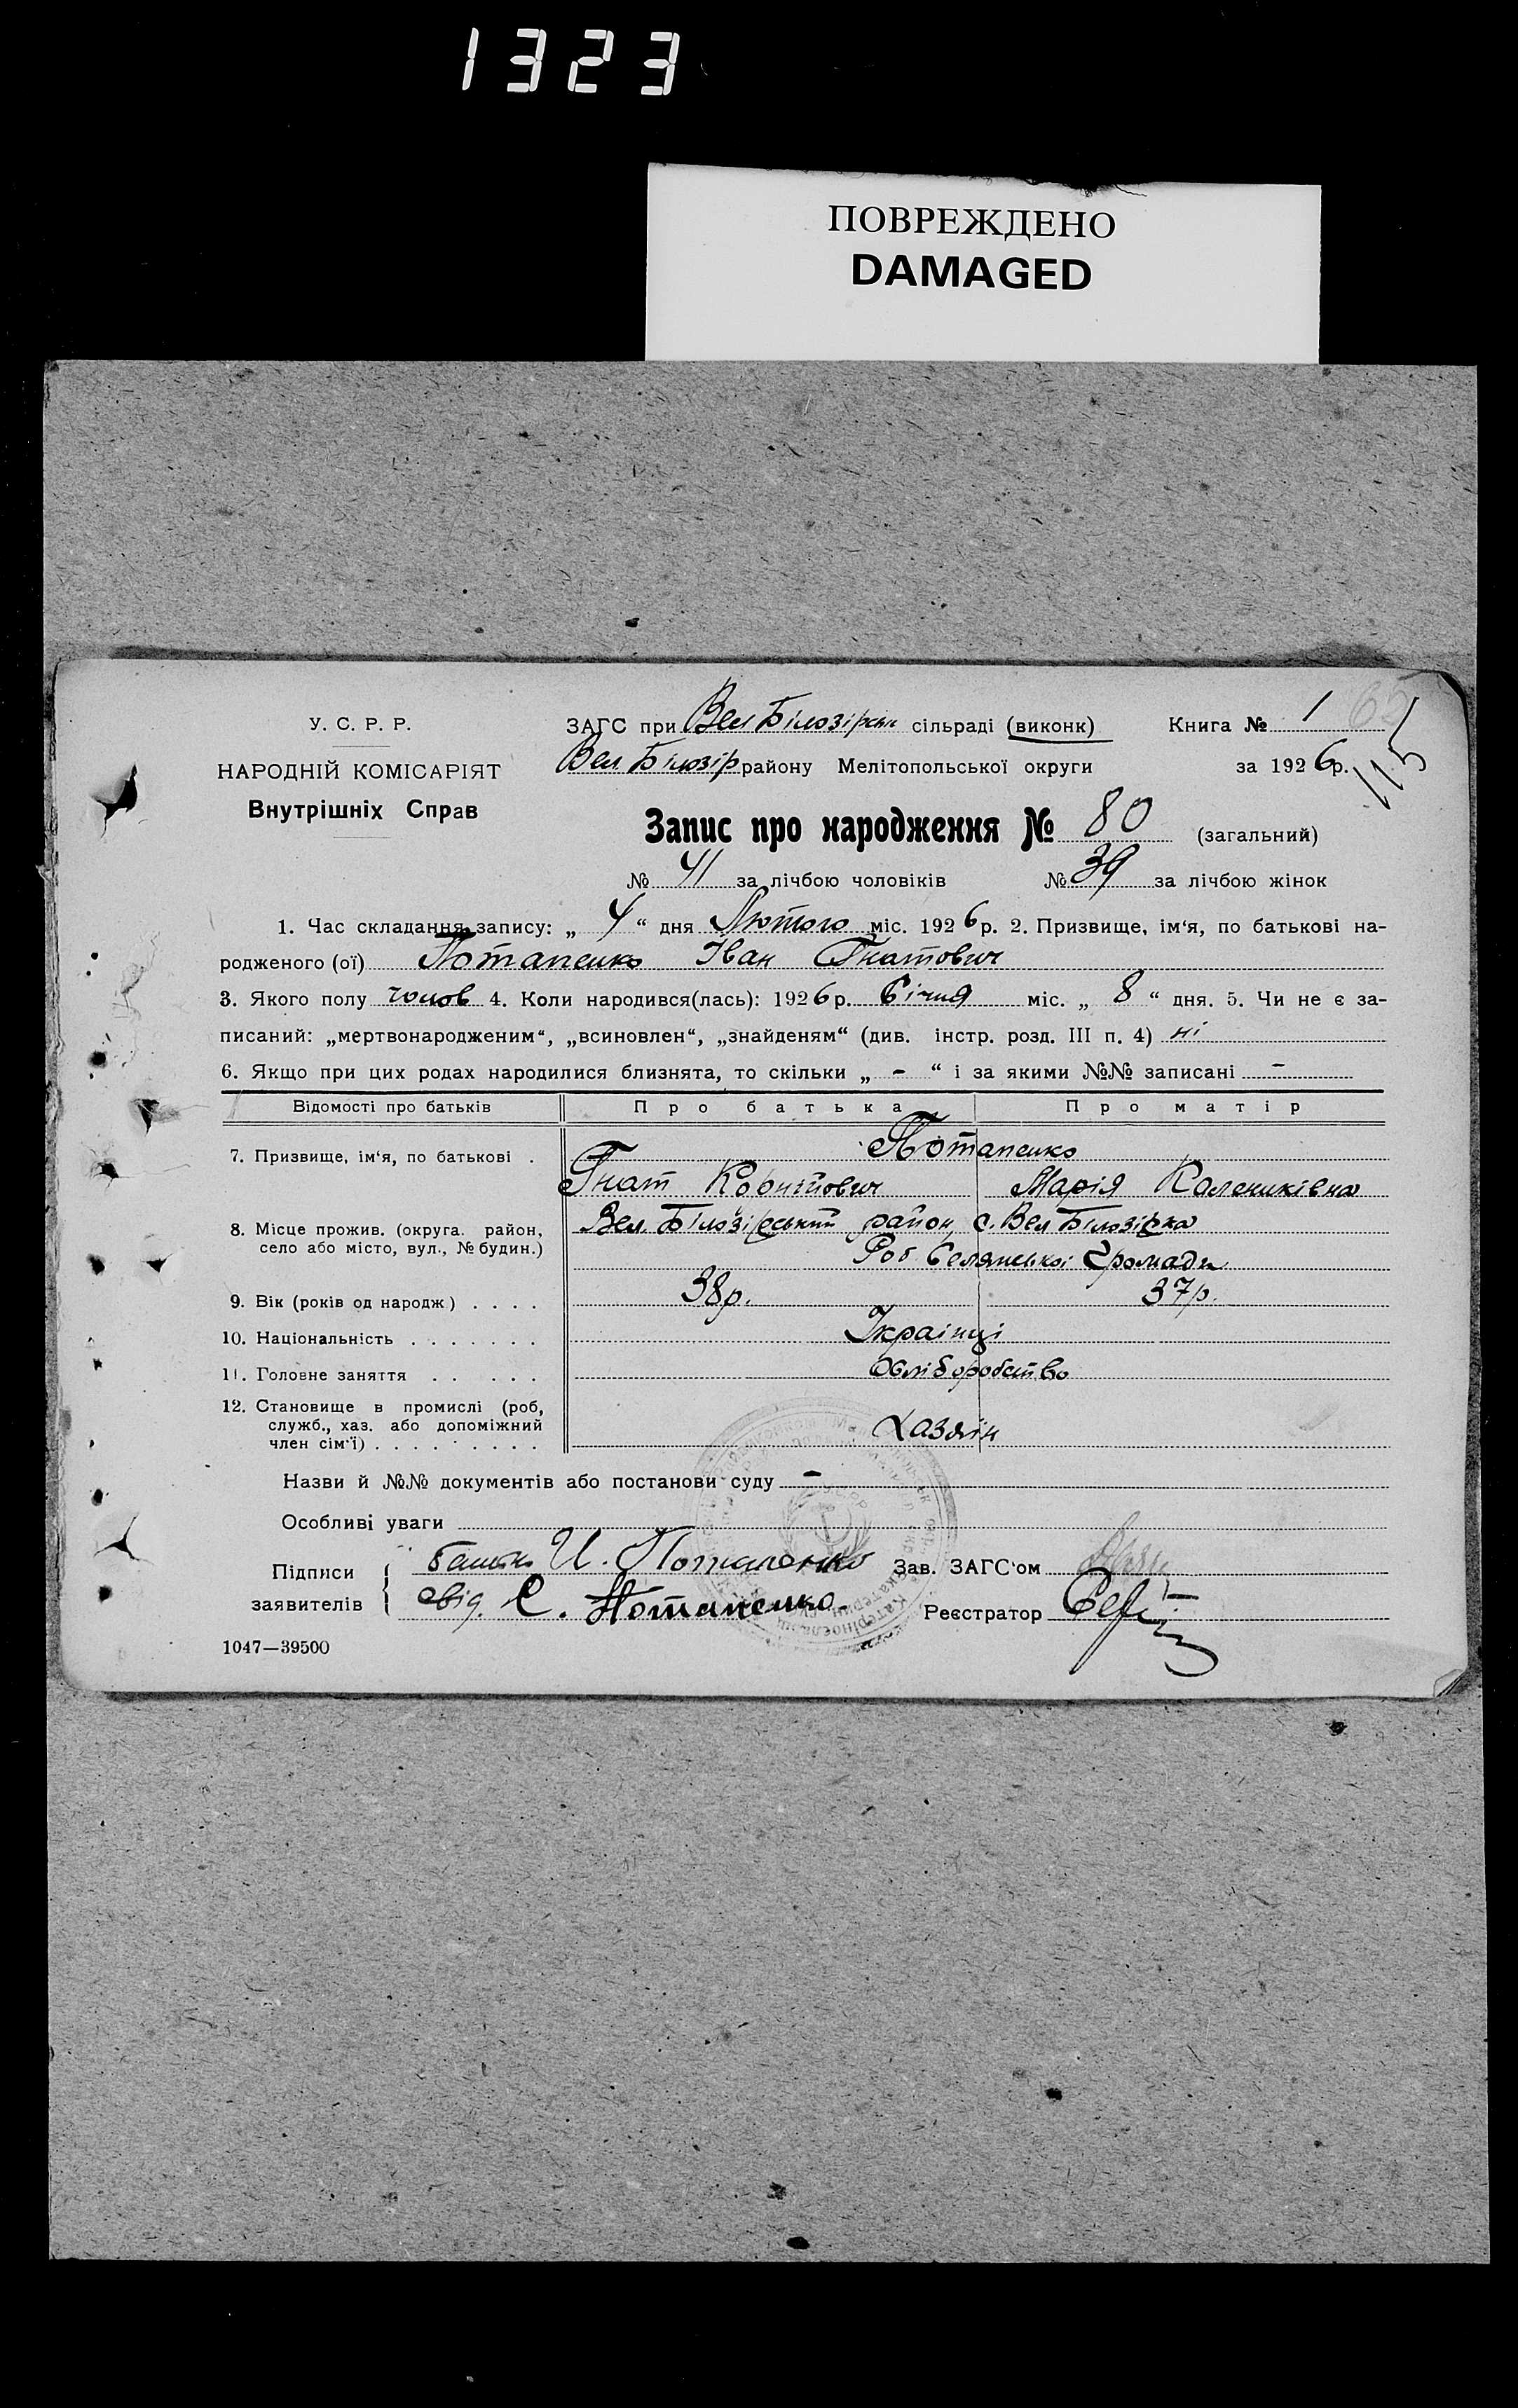 1323
ПОВРЕЖДЕНО
DAMAGED
У. С. Р. Р.
НАРОДНІЙ КОМІСАРІЯТ
Внутрішніх Справ
ЗАГС при Вел Білозірськ сільраді (виконк) Книга № 1 65
Вел. Білозір району Мелітопольської округи за 1926р.
115
Запис про народження № 80 (загальний)
№ 41 за лічбою чоловіків № 39 за лічбою жінок
1. Час складання запису: „ 4 “ дня Лютого міс. 1926р. 2. Призвище, ім‘я, по батькові на-
родженого (ої) Потапенко Іван Гнатович
3. Якого полу чолов 4. Коли народився(лась): 1926р. Січня міс. „ 8 “ дня. 5. Чи не є за-
писаний: „мертвонародженим“, „всиновлен“, „знайденям“ (див. інстр. розд. III п. 4) ні
6. Якщо при цих родах народилися близнята, то скільки „ - “ і за якими №№ записані -
Відомості про батьків Про батька Про матір
7. Призвище, ім‘я, по батькові . Потапенко
Гнат Марія Калениківна
8. Місце прожив. (округа. район, село або місто, вул., № будин.)
Вел. Білозірський район, с. Вел Білозірка
Роб. Селянської Громади
9. Вік (років од народж) . . . . 38р. 37р.
10. Національність . . . . . . . Українці
11. Головне заняття . . . . . Хліборобство
12. Становище в промислі (роб,
служб., хаз. або допоміжний
член сім‘ї) . . . . . . . . . Хазяїн
Назви й №№ документів або постанови суду -
Особливі уваги
Підписи заявителів
батько И. Потапенко Зав. ЗАГС‘ом
свід. С. Потапенко Реєстратор
1047—39500